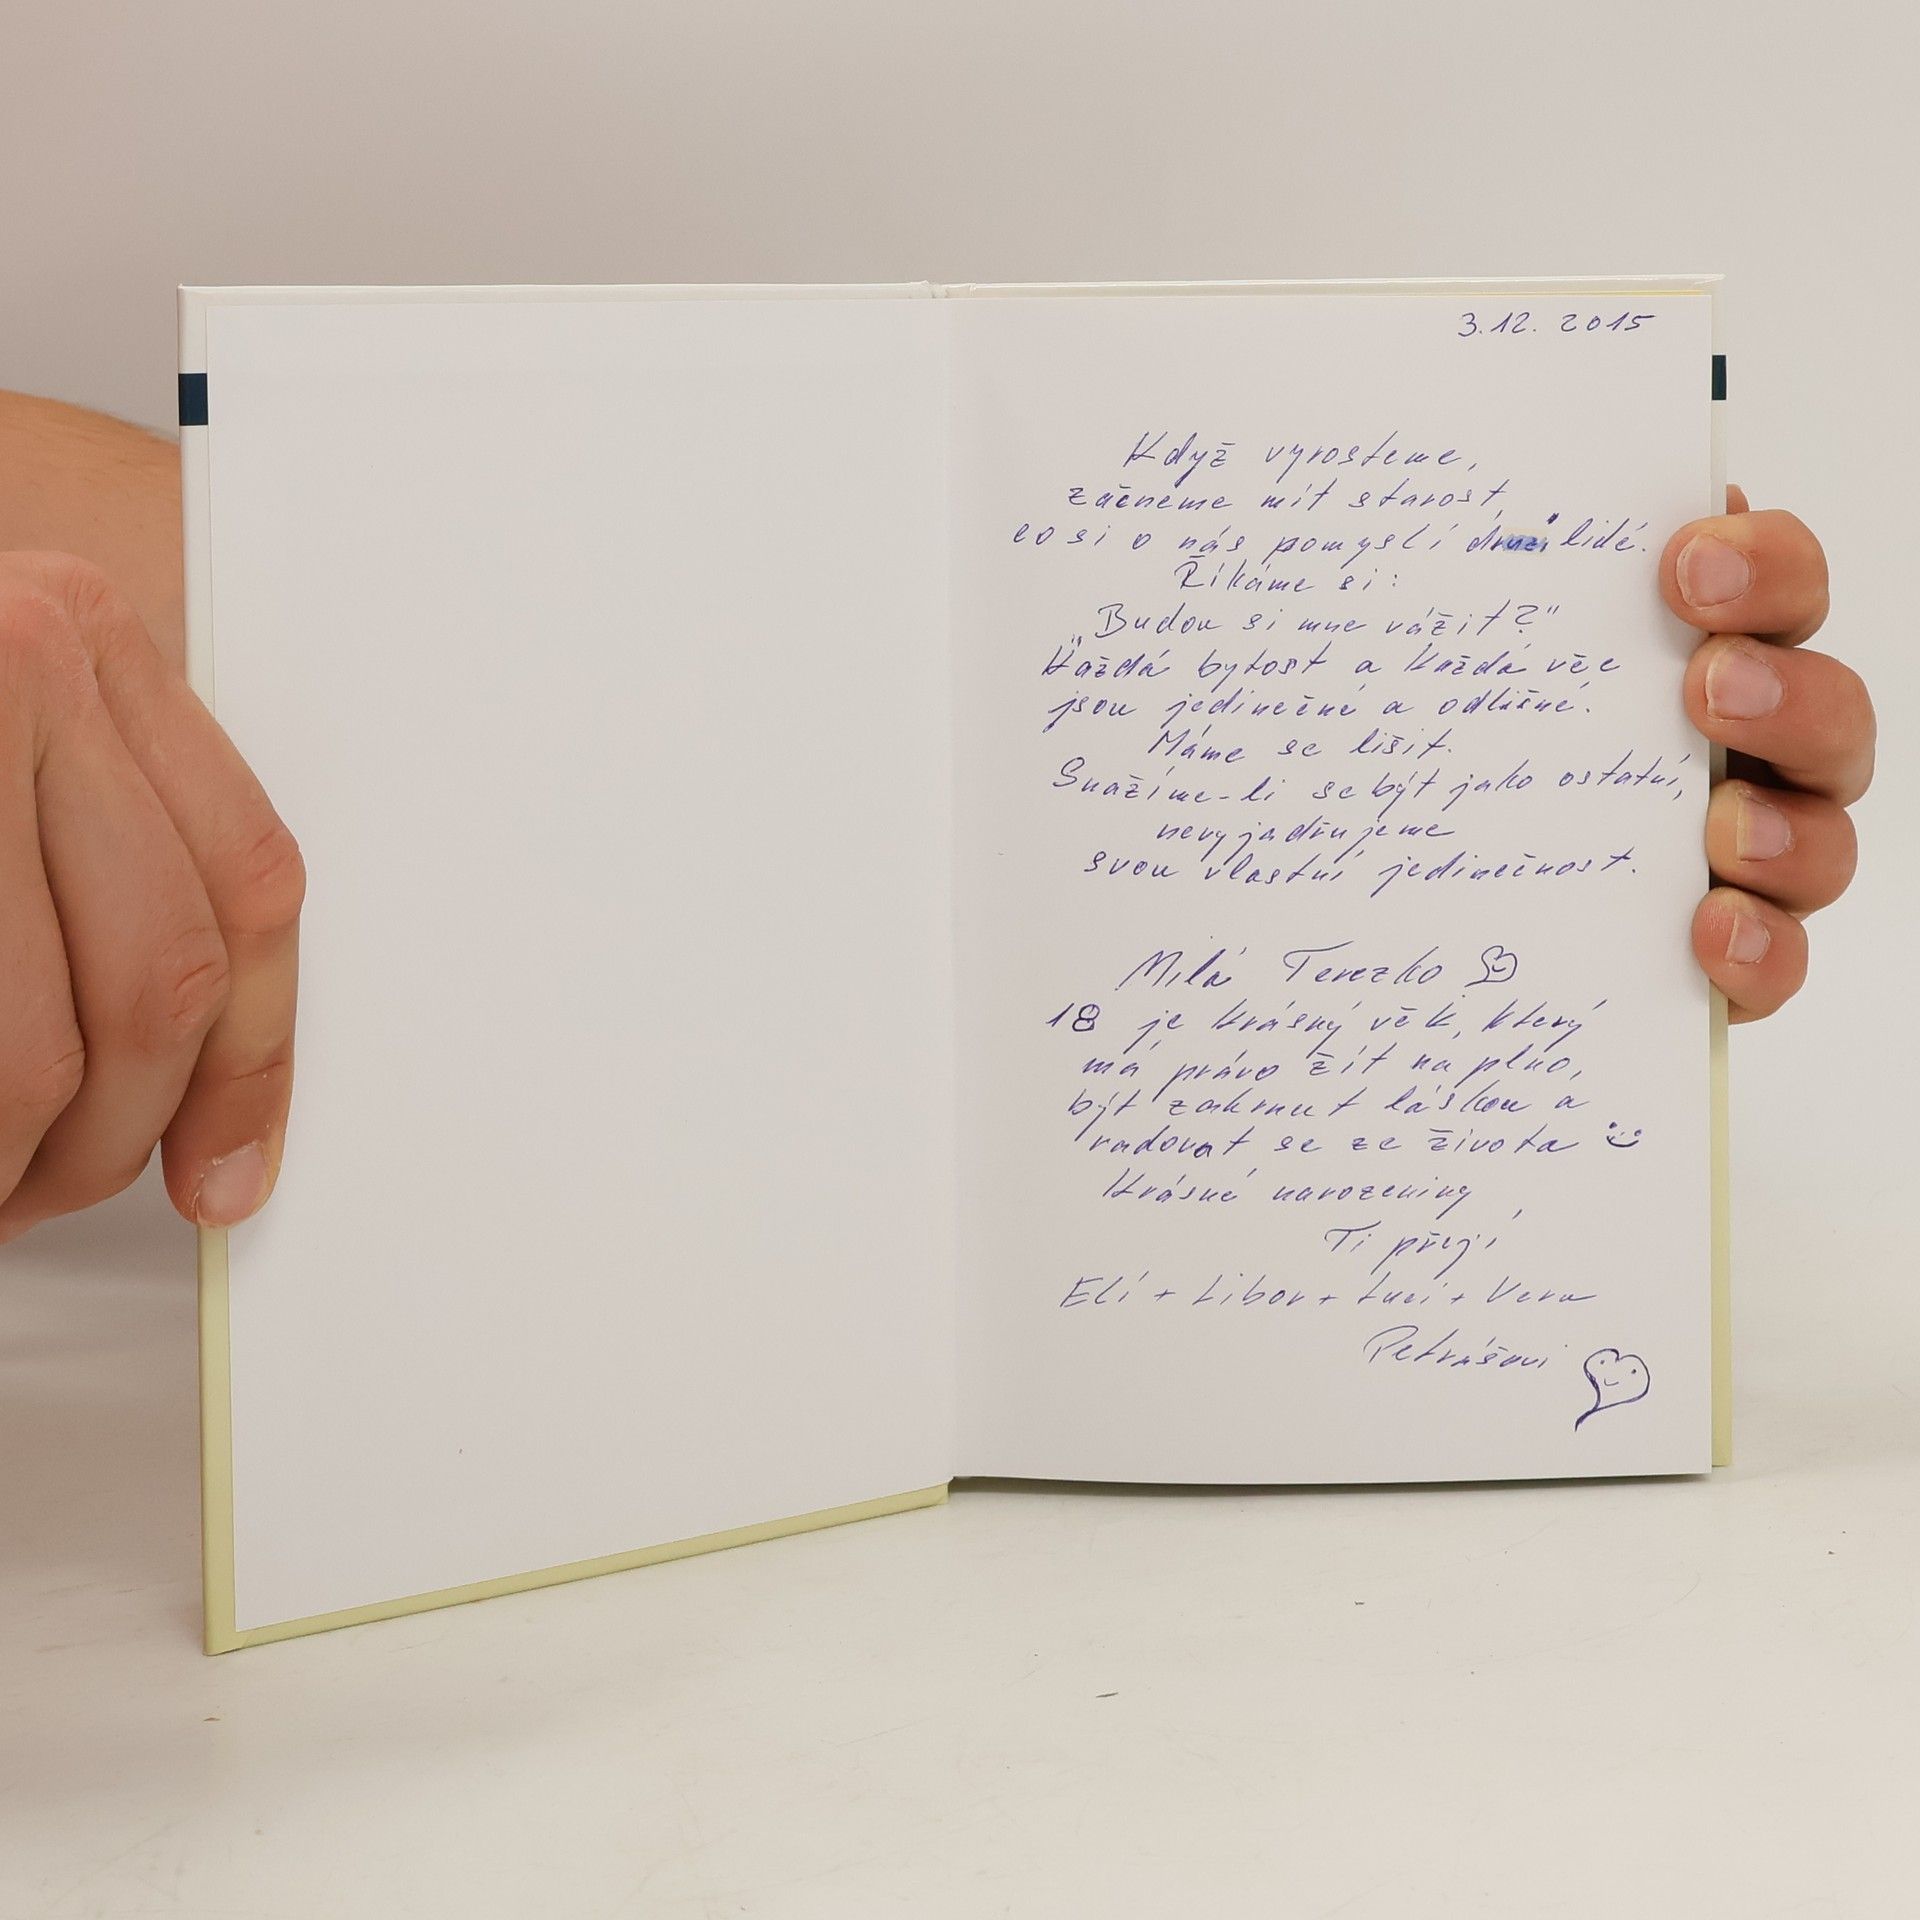 3.12. 2015
Když vyrosteme,
začneme mít starost,
co si o nás pomyslí druzí lidé.
Říkáme si:
„Budou si mne vážit?"
Každá bytost a každá věc
jsou jedinečné a odlišné.
Máme se lišit.
Snažíme-li se být jako ostatní,
nevyjadřujeme
svou vlastní jedinečnost.
Milá Terezko
18 je krásný věk, který
má právo žít na plno,
být zahrnut láskou a
radovat se ze života
Krásné narozeniny
Ti přejí
Elí + Libor + Luci + Vera
Petrášovi